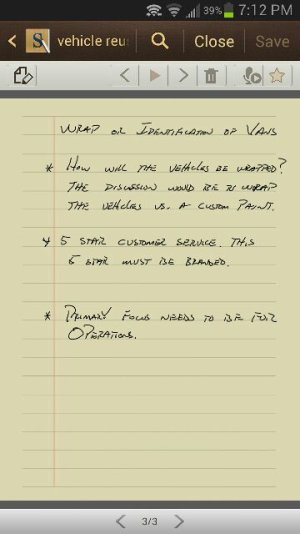 39% 7:12 PM
S vehicle reu Close Save
WRAP OR IDENTIFICATION OF VANS
* HOW WILL THE VEHICLES BE WRAPPED?
THE DISCUSSION WOULD BE TO WRAP
THE VEHICLES VS. A CUSTOM PAINT.
* 5 STAR CUSTOMER SERVICE. THIS
5 STAR MUST BE BRANDED.
* PRIMARY FOCUS NEEDS TO BE FOR
OPERATIONS.
3/3